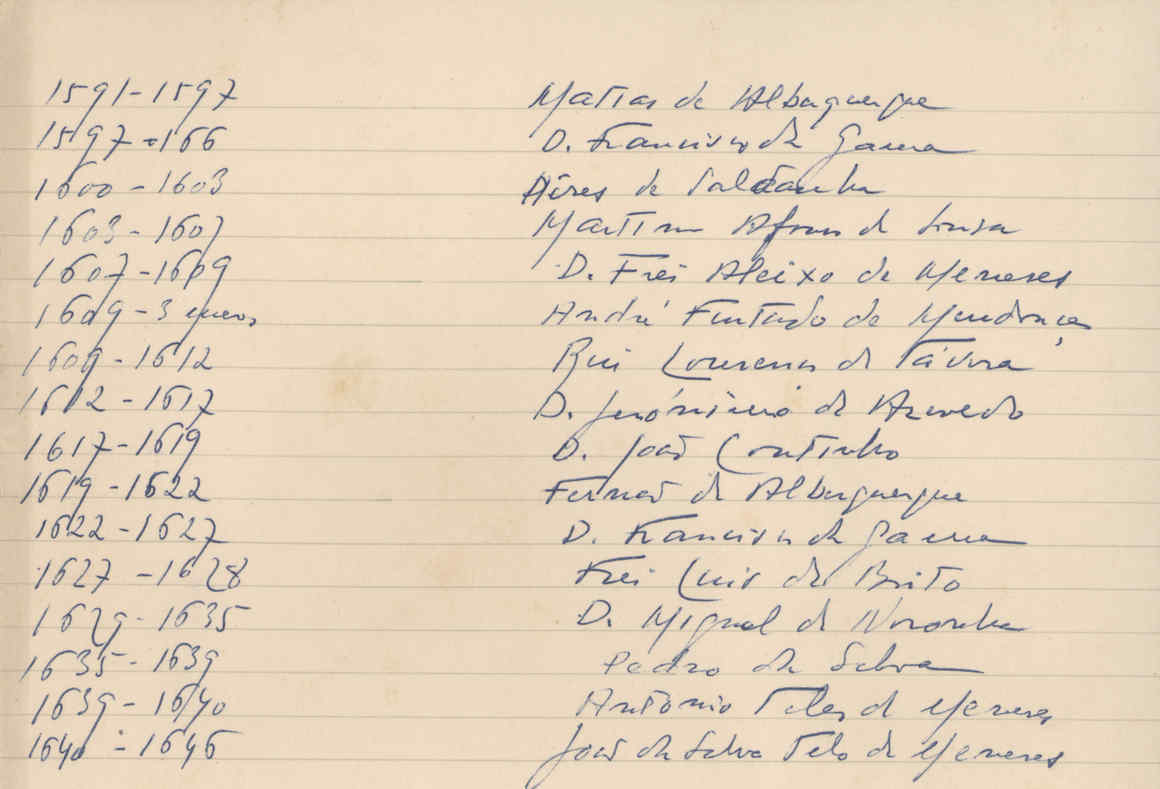 1591-1597 Matias de Albuquerque
1597-166 D. Francisco da Gama
1600-1603 Aires de Saldanha
1603-1607 Martim Afonso de Sousa
1607-1609 D. Frei Aleixo de Meneses
1609-3 meses André Furtado de Mendonça
1609-1612 Rui Lourenço de Távora
1612-1617 D. Jerónimo de Azevedo
1617-1619 D. João Coutinho
1619-1622 Fernão de Albuquerque
1622-1627 D. Francisco da Gama
1627-1628 Frei Luis de Brito
1629-1635 D. Miguel de Noronha
1635-1639 Pedro da Silva
1639-1640 António Teles de Meneses
1640-1646 João da Silva Telo de Meneses